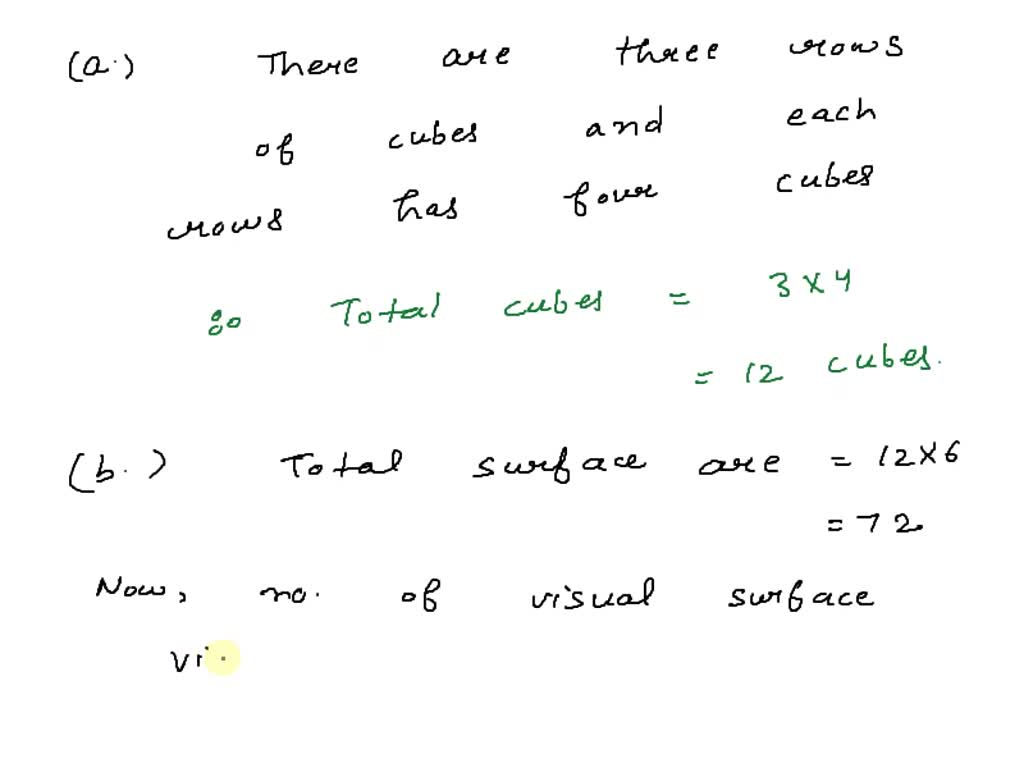 (a.) There are three rows
of cubes and each
rows has four cubes
so Total cubes = 3 x 4
= 12 cubes.
(b.) Total surface are = 12 x 6
= 72.
Now, no. of visual surface
vi